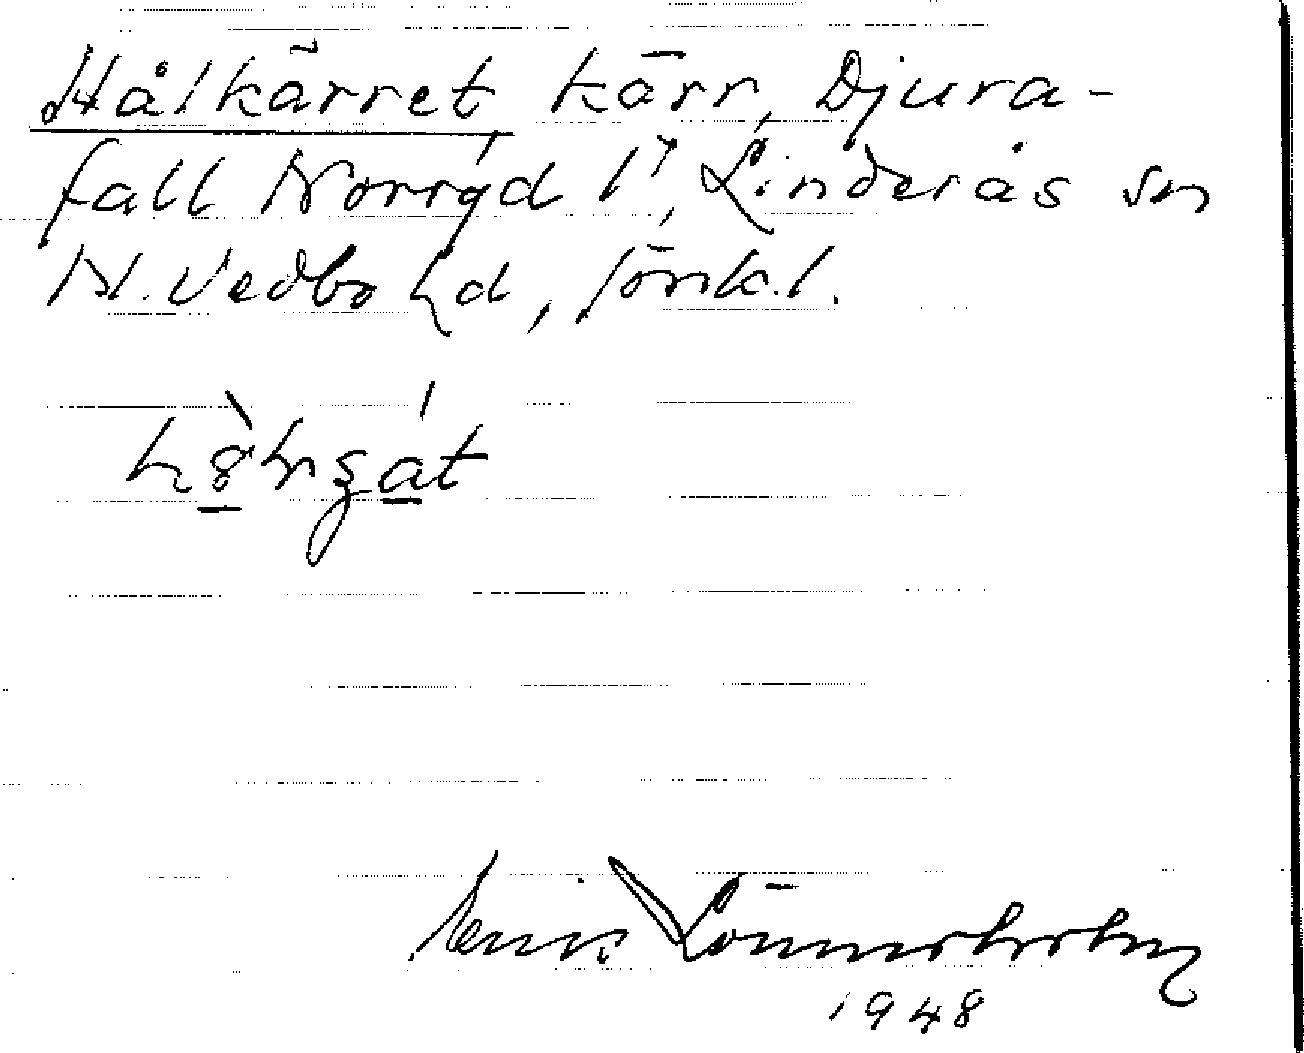 Hålkärret, kärr, Djura-
fall Norrgd 1⁷, Linderås sn
N. Vedbo hd, Jönk.l.
Erik Lönnerholm
1948